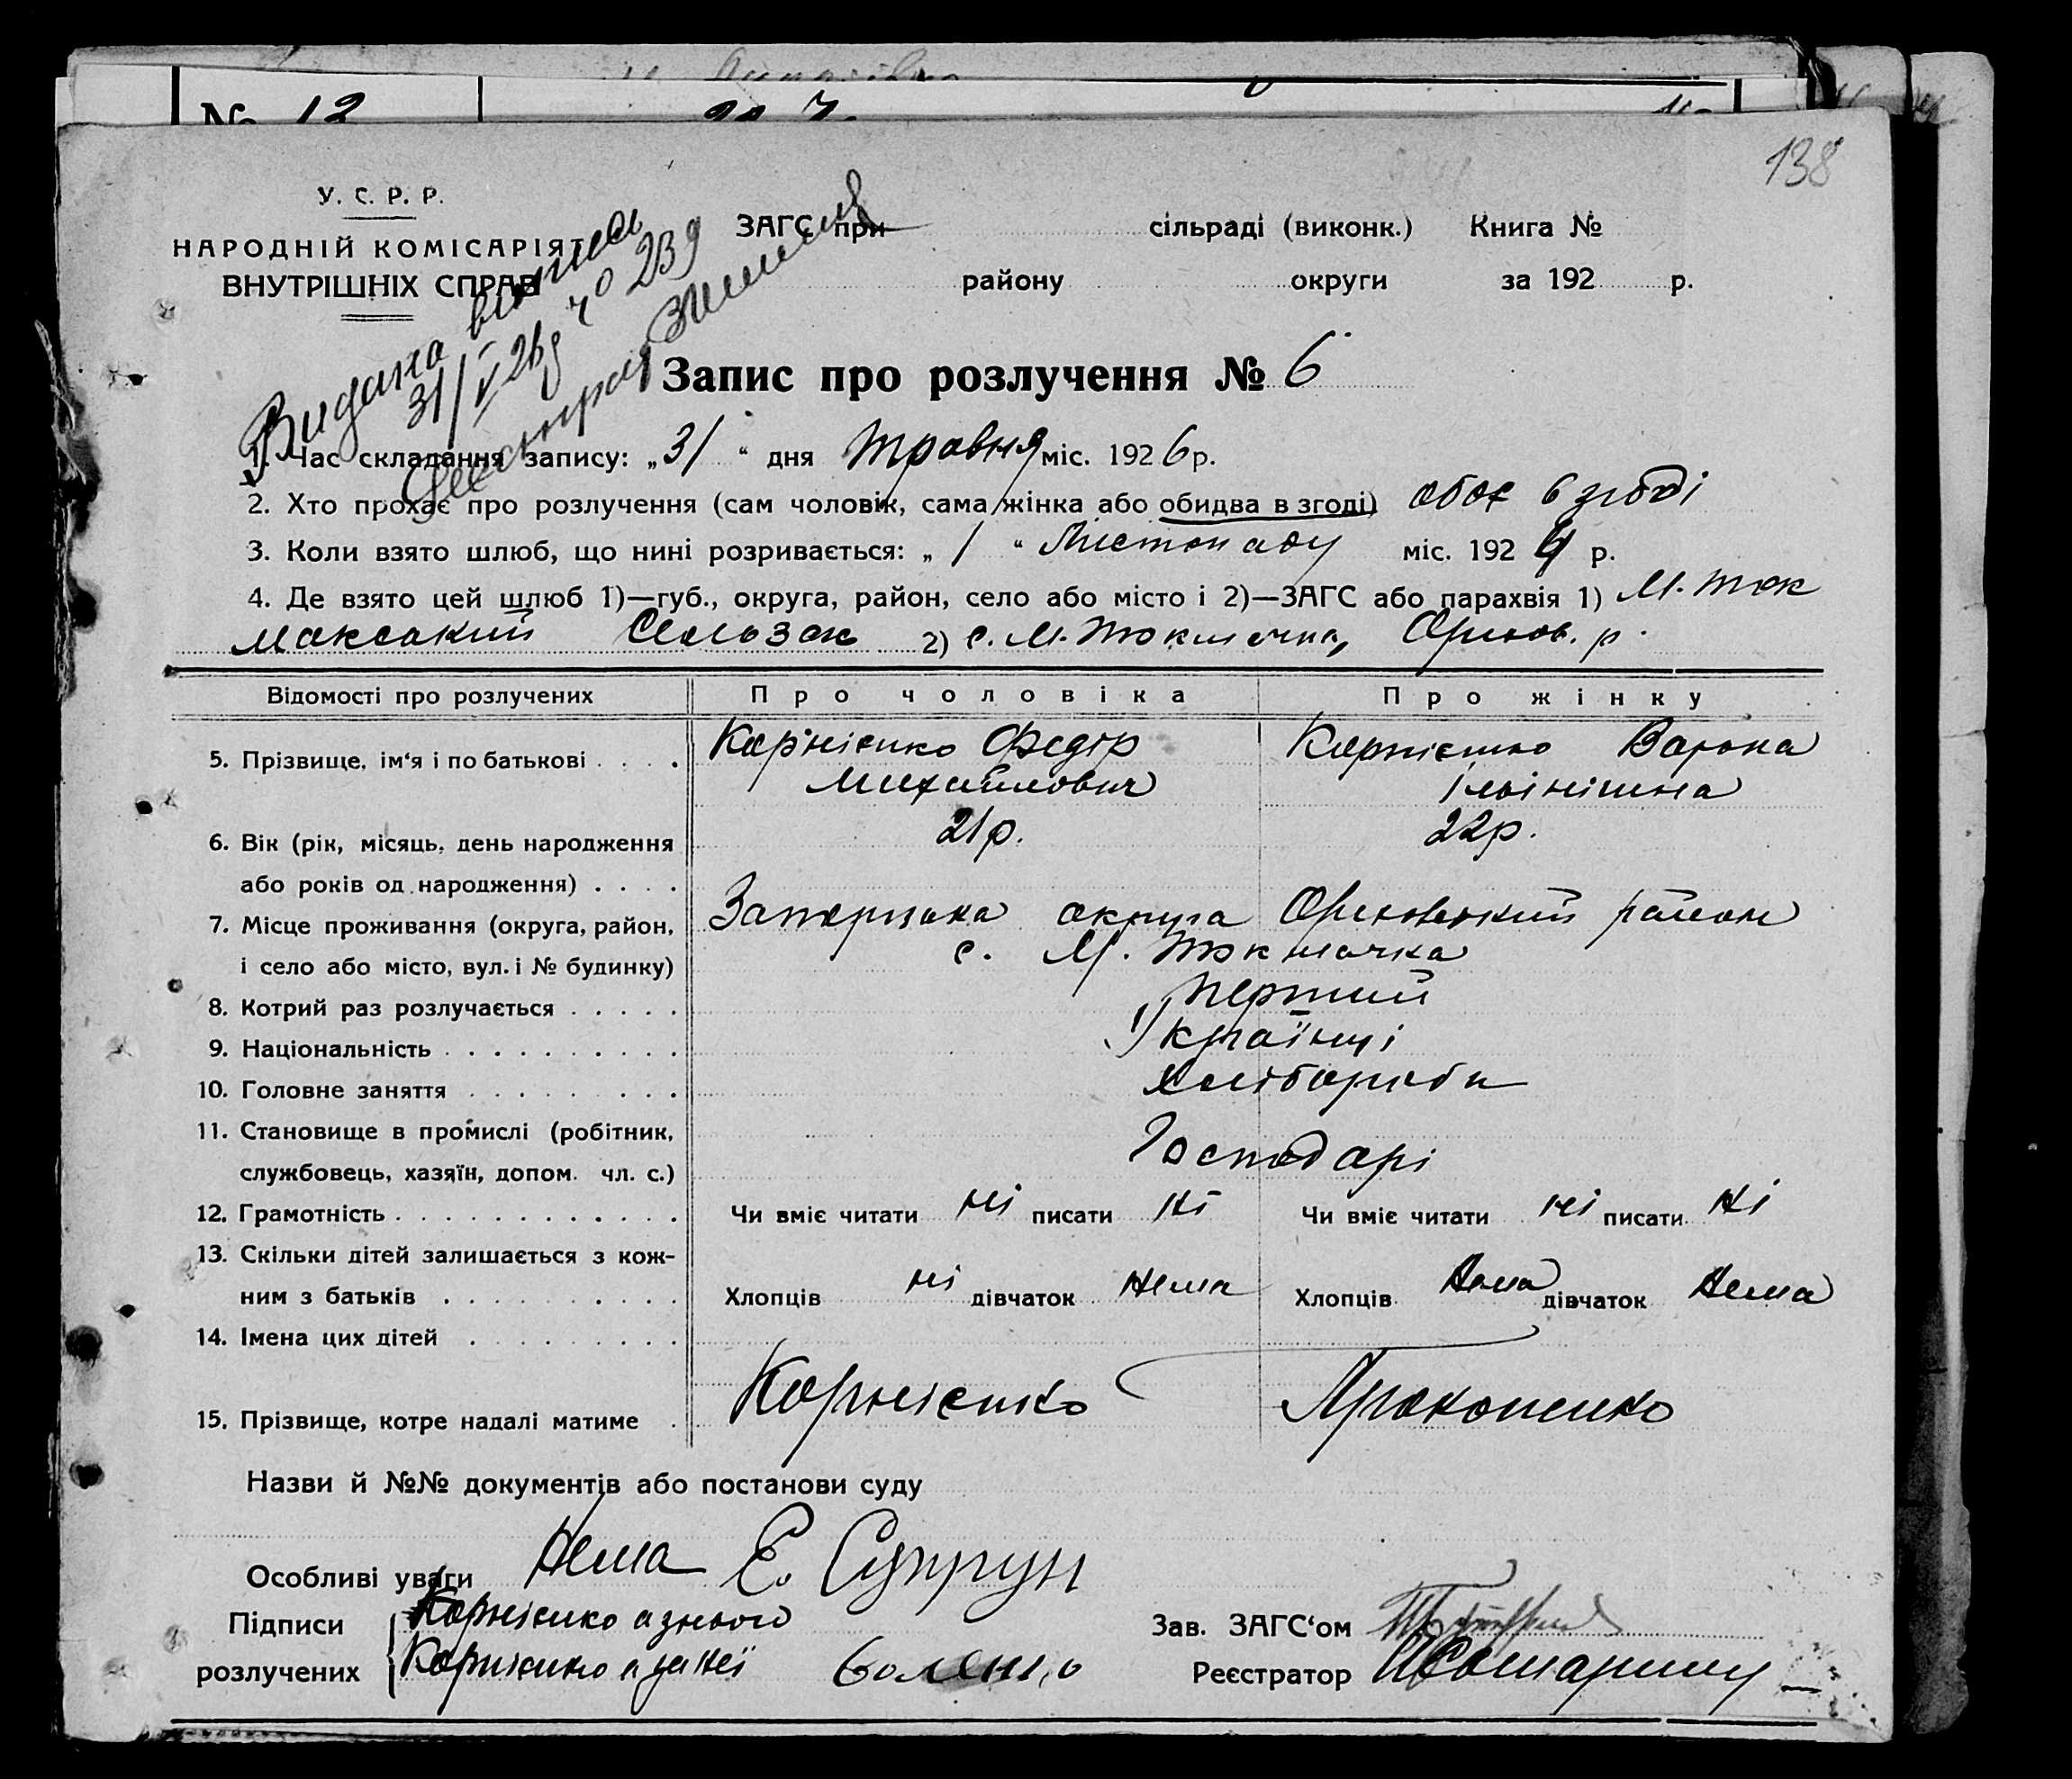 № 12
138
У. С. Р. Р.
НАРОДНІЙ КОМІСАРІЯТ
ВНУТРІШНІХ СПРАВ
ЗАГС при сільраді (виконк.) Книга №
району округи за 192 р.
Видана виписка
31/V 26 р ч0 239
Запис про розлучення № 6
1. Час складання запису: „31“ дня травня міс. 1926 р.
2. Хто прохає про розлучення (сам чоловік, сама жінка або обидва в згоді) обоє в згоді
3. Коли взято шлюб, що нині розривається: „1“ Листопаду міс. 1924 р.
4. Де взято цей шлюб 1)—губ., округа, район, село або місто і 2)—ЗАГС або парахвія 1) М. Ток
макський 2) с. М. Токмачка, Оріхов. р.
Відомості про розлучених Про чоловіка Про жінку
5. Прізвище, ім‘я і по батькові . . . . Корнієнко Федір Корнієнко
Михайлович
6. Вік (рік, місяць, день народження 21 р. 22 р.
або років од народження) . . . .
7. Місце проживання (округа, район, Запоріська округа Оріховський район
і село або місто, вул. і № будинку) с. М. Токмачка
8. Котрий раз розлучається . . . . . перший
9. Національність . . . . . . . . . . Українці
10. Головне заняття . . . . . . . . . хлібороби
11. Становище в промислі (робітник, Господарі
службовець, хазяїн, допом. чл. с.)
12. Грамотність . . . . . . . . . . . . Чи вміє читати ні писати ні Чи вміє читати ні писати ні
13. Скільки дітей залишається з кож-
ним з батьків . . . . . . . . . . Хлопців ні дівчаток нема Хлопців нема дівчаток нема
14. Імена цих дітей . . . . . . . . .
15. Прізвище, котре надалі матиме . Корнієнко Прокопенко
Назви й №№ документів або постанови суду
Особливі уваги нема Е. Супрун
Підписи Корнієнко а за нього Зав. ЗАГС‘ом
розлучених Корнієнко а за неї Реєстратор